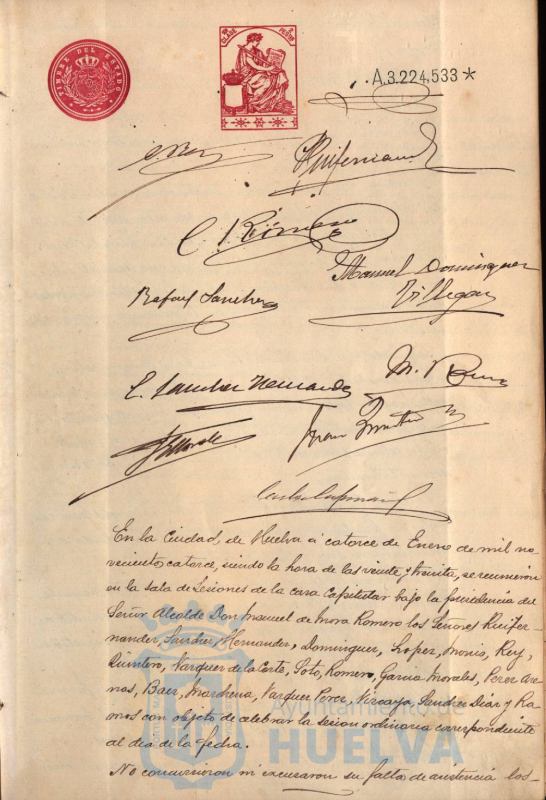 TIMBRE DEL ESTADO
.A.3.224.533*
Ruifernandez
C. Romero
Manuel Dominguez
Villegas
Rafael Sanchez
C. Sanchez Hernandez
M. V
Juan Quintero
En la Ciudad de Huelva á catorce de Enero de mil no-
vecientos catorce, siendo la hora de las veinte y treinta, se reunieron
en la sala de Sesiones de la casa Capitular bajo la presidencia del
Señor Alcalde Don Manuel de Mora Romero los Señores Ruifer-
nandez, Sanchez Hernandez, Dominguez, Lopez, Monis, Rey,
Quintero, Vazquez de la Corte, Soto, Romero, Garcia Morales, Perez Are-
nas, Baez, Marchena, Vazquez Perez, Vizcaya, Sanchez Diaz y Ra-
mos con objeto de celebrar la sesion ordinaria correspondiente
al dia de la fecha.
No concurrieron ni excusaron su falta de asistencia los
Ayuntamiento de
HUELVA